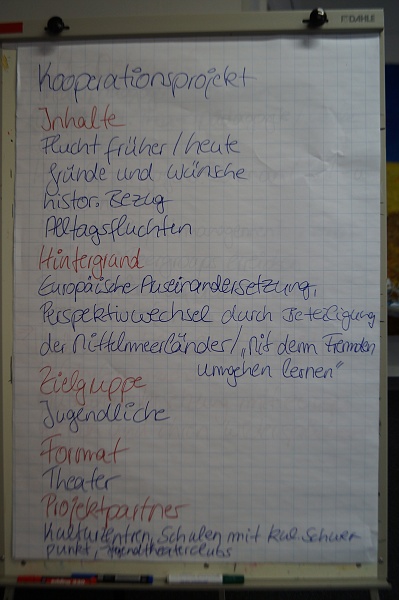 DAHLE
Kooperationsprojekt
Inhalte
Flucht früher/heute
Gründe und Wünsche
histor. Bezug
Alltagsfluchten
Hintergrund
Europäische Auseinandersetzung,
Perspektivwechsel durch Beteiligung
der Mittelmeerländer/„Mit dem Fremden
umgehen lernen"
Zielgruppe
Jugendliche
Format
Theater
Projektpartner
Kulturzentren, Schulen mit kul. Schwer
punkt, Jugendtheaterclubs